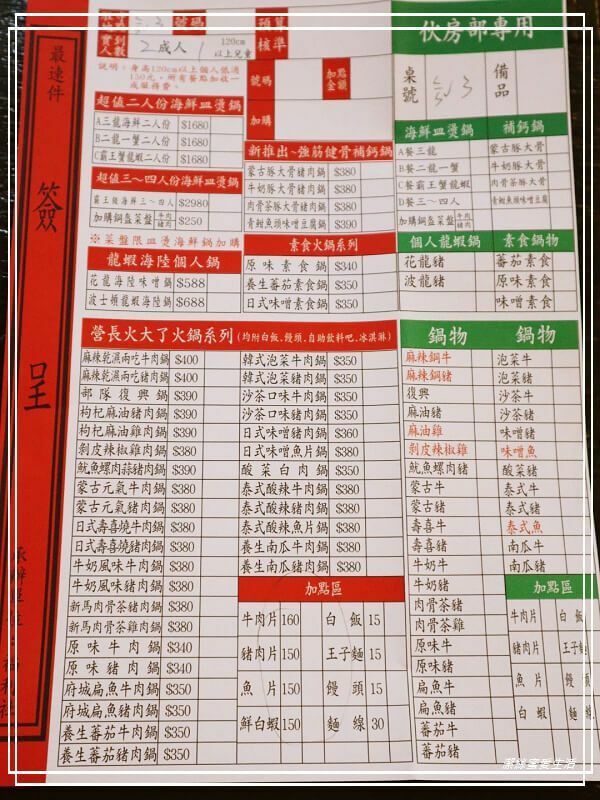 最速件
簽
呈
號碼
預算
核準
實到
人數
2成人
1
120cm
以上兒童
說明：身高120cm以上個人低消
150元，所有餐點加收一
成服務費。
號碼
加點
金額
加購
超值二人份海鮮皿燙鍋
A三龍海鮮二人份 $1680
B二龍一蟹二人份 $1680
C霸王蟹龍蝦二人份 $1680
超值三～四人份海鮮皿燙鍋
霸王級海鮮三~四人 $2980
加購鍋盔菜盤 牛肉 豬肉 $250
※菜盤限皿燙海鮮鍋加購
龍蝦海陸個人鍋
花龍海陸味噌鍋 $588
波士頓龍蝦海陸鍋 $688
新推出~強筋健骨補鈣鍋
蒙古豚大骨豬肉鍋 $380
牛奶豚大骨豬肉鍋 $380
肉骨茶豚大骨豬肉鍋 $380
青甜魚頭味噌豆腐鍋 $390
素食火鍋系列
原味素食鍋 $340
養生蕃茄素食鍋 $350
日式味噌素食鍋 $350
營長火大了火鍋系列(均附白飯.饅頭.自助飲料吧.冰淇淋)
麻辣乾濕兩吃牛肉鍋 $400
麻辣乾濕兩吃豬肉鍋 $400
部隊復興鍋 $390
枸杞麻油豬肉鍋 $390
枸杞麻油雞肉鍋 $390
剝皮辣椒雞肉鍋 $380
魷魚螺肉蒜豬肉鍋 $390
蒙古元氣牛肉鍋 $380
蒙古元氣豬肉鍋 $380
日式壽喜燒牛肉鍋 $380
日式壽喜燒豬肉鍋 $380
牛奶風味牛肉鍋 $380
牛奶風味豬肉鍋 $380
新馬肉骨茶豬肉鍋 $380
新馬肉骨茶雞肉鍋 $380
原味牛肉鍋 $340
原味豬肉鍋 $340
府城扁魚牛肉鍋 $350
府城扁魚豬肉鍋 $350
養生蕃茄牛肉鍋 $350
養生蕃茄豬肉鍋 $350
韓式泡菜牛肉鍋 $350
韓式泡菜豬肉鍋 $350
沙茶口味牛肉鍋 $350
沙茶口味豬肉鍋 $350
日式味噌豬肉鍋 $360
日式味噌魚片鍋 $380
酸菜白肉鍋 $350
泰式酸辣牛肉鍋 $380
泰式酸辣豬肉鍋 $380
泰式酸辣魚片鍋 $380
養生南瓜牛肉鍋 $380
養生南瓜豬肉鍋 $380
加點區
牛肉片 160 白飯 15
豬肉片 150 王子麵 15
魚片 150 饅頭 15
鮮白蝦 150 麵線 30
伙房部專用
桌號
備品
海鮮皿燙鍋 補鈣鍋
A餐三龍 蒙古豚大骨
B餐二龍一蟹 牛奶豚大骨
C餐霸王蟹龍蝦 肉骨茶豚大骨
D餐三～四人 青甜魚頭味噌豆腐鍋
加購鍋盔菜盤 牛肉 豬肉
個人龍蝦鍋 素食鍋物
花龍豬 蕃茄素食
波龍豬 原味素食
味噌素食
鍋物 鍋物
麻辣鍋牛 泡菜牛
麻辣鍋豬 泡菜豬
復興 沙茶牛
麻油豬 沙茶豬
麻油雞 味噌豬
剝皮辣椒雞 味噌魚
魷魚螺肉豬 酸菜豬
蒙古牛 泰式牛
蒙古豬 泰式豬
壽喜牛 泰式魚
壽喜豬 南瓜牛
牛奶牛 南瓜豬
牛奶豬
肉骨茶豬
肉骨茶雞
原味牛
原味豬
扁魚牛
扁魚豬
蕃茄牛
蕃茄豬
加點區
牛肉片 白飯
豬肉片 王子麵
魚片 饅頭
白蝦 麵線
潔絲蜜愛生活